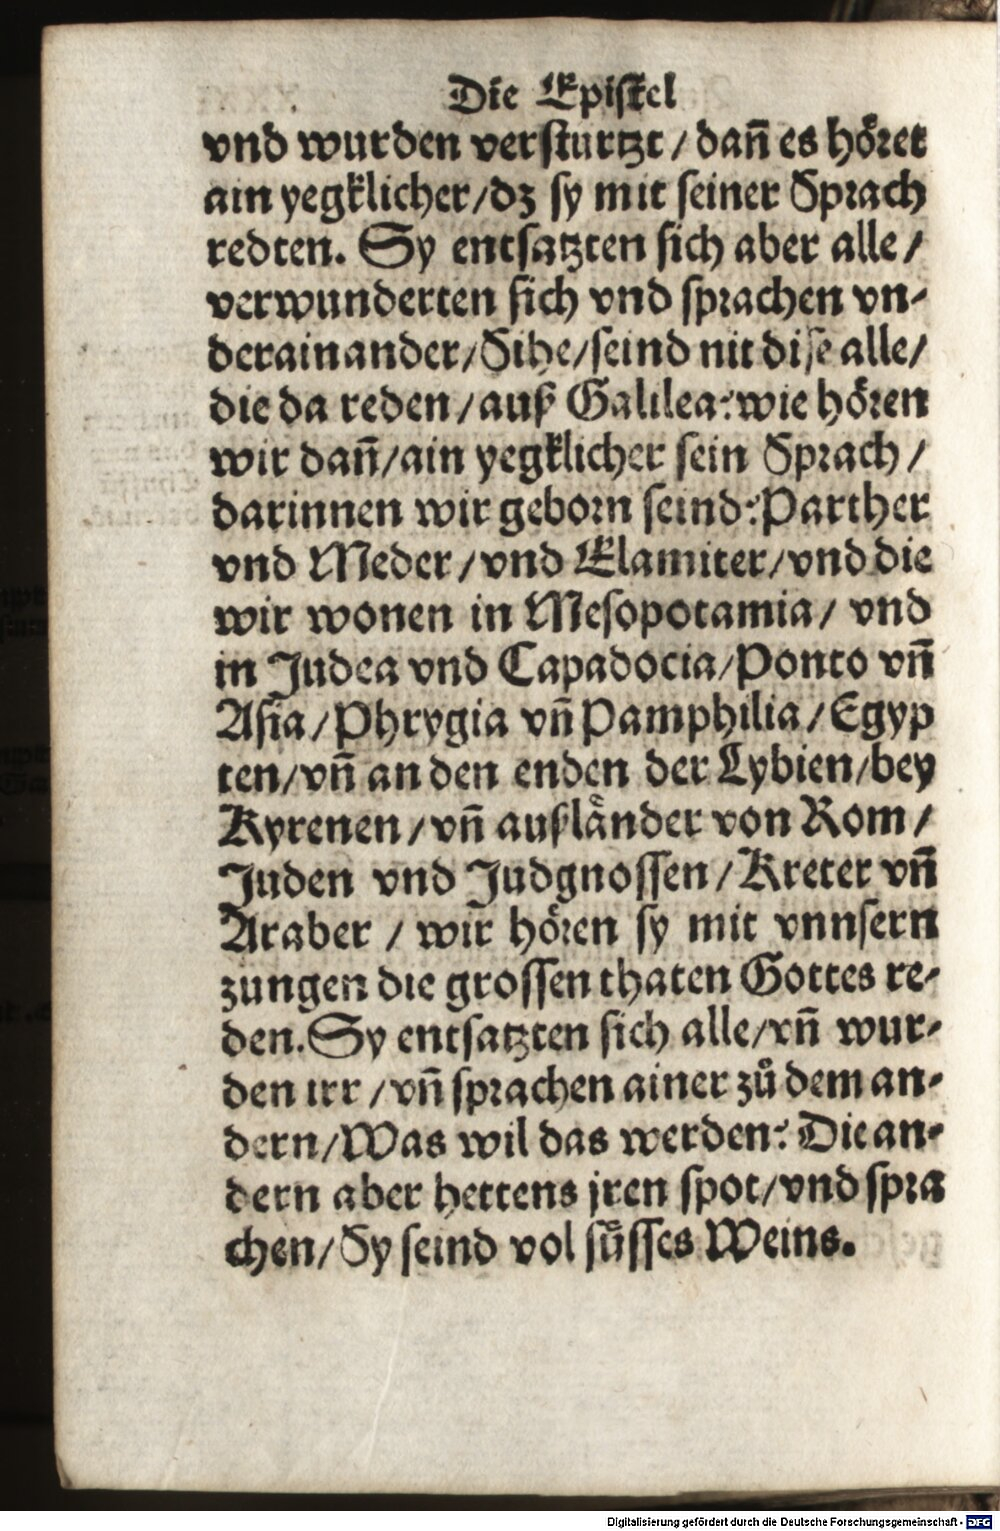 Die Epistel
vnd wurden verſturtzt / dañ es hoͤret
ain yegklicher/dz ſy mit ſeiner Sprach
redten. Sy entſatzten ſich aber alle /
verwunderten ſich vnd ſprachen vn-
derainander/Sihe/ſeind nit diſe alle/
die da reden / auß Galilea: wie hoͤren
wir dañ/ain yegklicher ſein Sprach /
darinnen wir geborn ſeind: Parther
vnd Meder / vnd Elamiter/vnd die
wir wonen in Meſopotamia / vnd
in Judea vnd Capadocia/Ponto vñ
Aſia / Phrygia vñ Pamphilia / Egyp
ten/vñ an den enden der Lybien/bey
Kyrenen / vñ außlaͤnder von Rom /
Juden vnd Judgnoſſen / Kreter vñ
Araber / wir hoͤren ſy mit vnnſern
zungen die groſſen thaten Gottes re-
den. Sy entſatzten ſich alle/vñ wur-
den irr / vñ ſprachen ainer zuͦ dem an-
dern/Was wil das werden: Die an-
dern aber hettens jren ſpot/vnd ſpra
chen/Sy ſeind vol ſuͤſſes Weins.
Digitalisierung gefördert durch die Deutsche Forschungsgemeinschaft - DFG